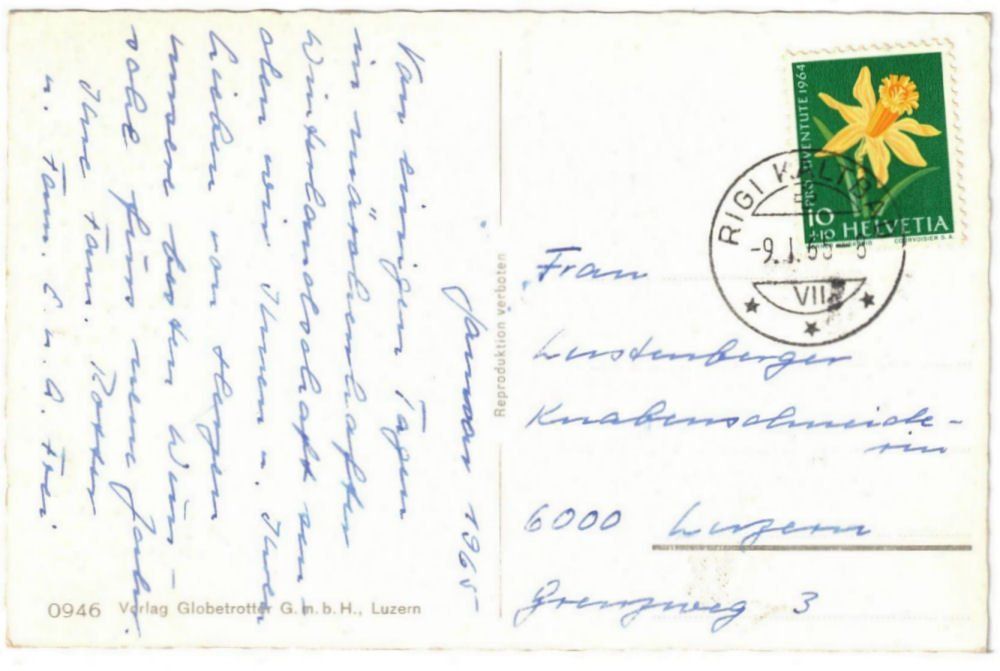 Januar 1965
Von einigen Tagen
in märchenhafter
Winterlandschaft sen-
den wir Ihnen u. Ihren
Lieben von Herzen
unsere besten Wün-
sche fürs neue Jahr.
Ihre Fam. Rotter
u. Fam. E. u. A. Frei.
0946 Verlag Globetrotter G.m.b.H., Luzern
Reproduktion verboten
PRO JUVENTUTE 1964
10
+10 HELVETIA
COURVOISIER S.A.
RIGI KALTBAD
-9.1.65-8
VII
Frau
Lustenberger
Knabenschneide-
rin
6000 Luzern
Grenzweg 3